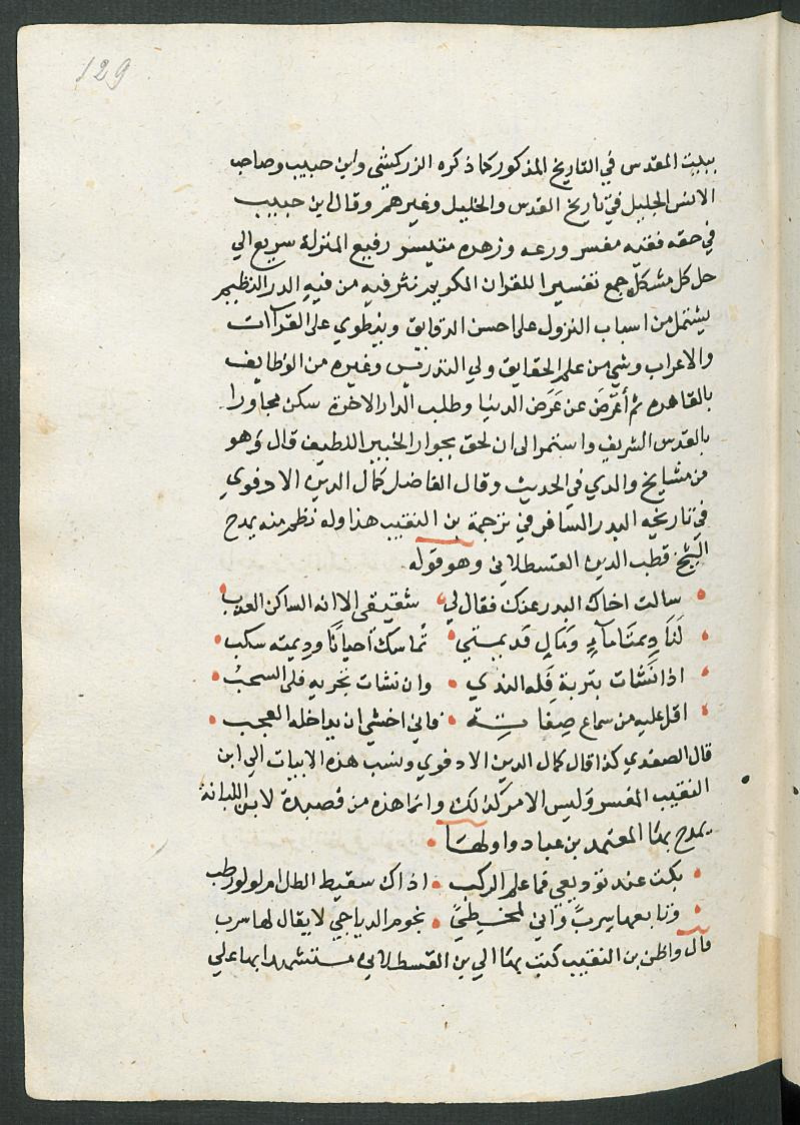 129
ببيت المقدس في التاريخ المذكور كما ذكره الزركشي وابن حبيب وصاحب
الانس الجليل في تاريخ القدس والخليل وغيرهم وقال ابن حبيب
في حقه فقيه مفسر ورعه وزهده متيسر رفيع المنزلة سريع الي
حل كل مشكلة جمع تفسيرا للقران الكريم نثر فيه من فيه الدر النظيم
يشتمل من اسباب النزول على احسن الدقايق وينطوي على القرآات
والاعراب وشي من علم الحقايق ولي التدريس وغيره من الوظايف
بالقاهره ثم أعرَضَ عن عَرَض الدنيا وطلب الدار الاخرة سكن مجاورا
بالقدس الشريف واستمر الى ان لحق بجوار الخبير اللطيف قال وهو
من مشايخ والدي في الحديث وقال الفاضل كمال الدين الادفوي
في تاريخه البدر السافر في ترجمة بن النقيب هذا وله نظم منه يمدح
الشيخ قطب الدين القسطلاني وهو قوله
سالت اخاك البدر عنك فقال لي شقيقي الا انه الساكن العذب
لَنَا دِيمتَا مآءٍ وَمَالٍ فديمتي تُماسك أحيانًا وديمته سكب
اذا نَشَات بترية فله الندي وان نشات بحريه فلى السحبُ
اقل عليه من سماع صفاته فاني اخشي ان يداخله العجب
قال الصفدي كذا قال كمال الدين الادفوي ونسب هذه الابيات الي ابن
النقيب المفسر وليس الامر كذلك وانما هذه من قصيدة لابن اللبانة
يمدح بها المعتمد بن عباد واولها
بكت عند توديعي فما علم الركب اذاك سقيط الطل ام لولو رطب
وتابعها سربٌ واني لمخطيٌ نجوم الدياجي لا يقال لها سرب
قال واظن بن النقيب كتب بها الي بن القسطلاني مستشهدا بها علي